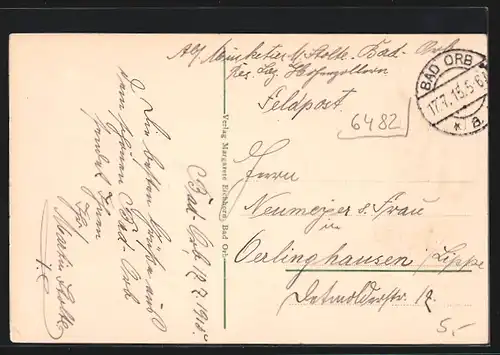 Abs. Musketier M. Stolte. Bad-Orb
Res. Laz. Hohenzollern
Feldpost.
BAD ORB
17.7.15.5-6
* a.
6482
Herrn
Neumeyer s. Frau
in
Oerlinghausen /Lippe
Detmolderstr. 12.
5.-
Verlag Margarete Eichhorn, Bad Orb.
Bad Orb 17.7.1915.
Die besten Grüße aus
dem schönen Bad-Orb
sendet Ihnen
Ihr
Martin Stolte